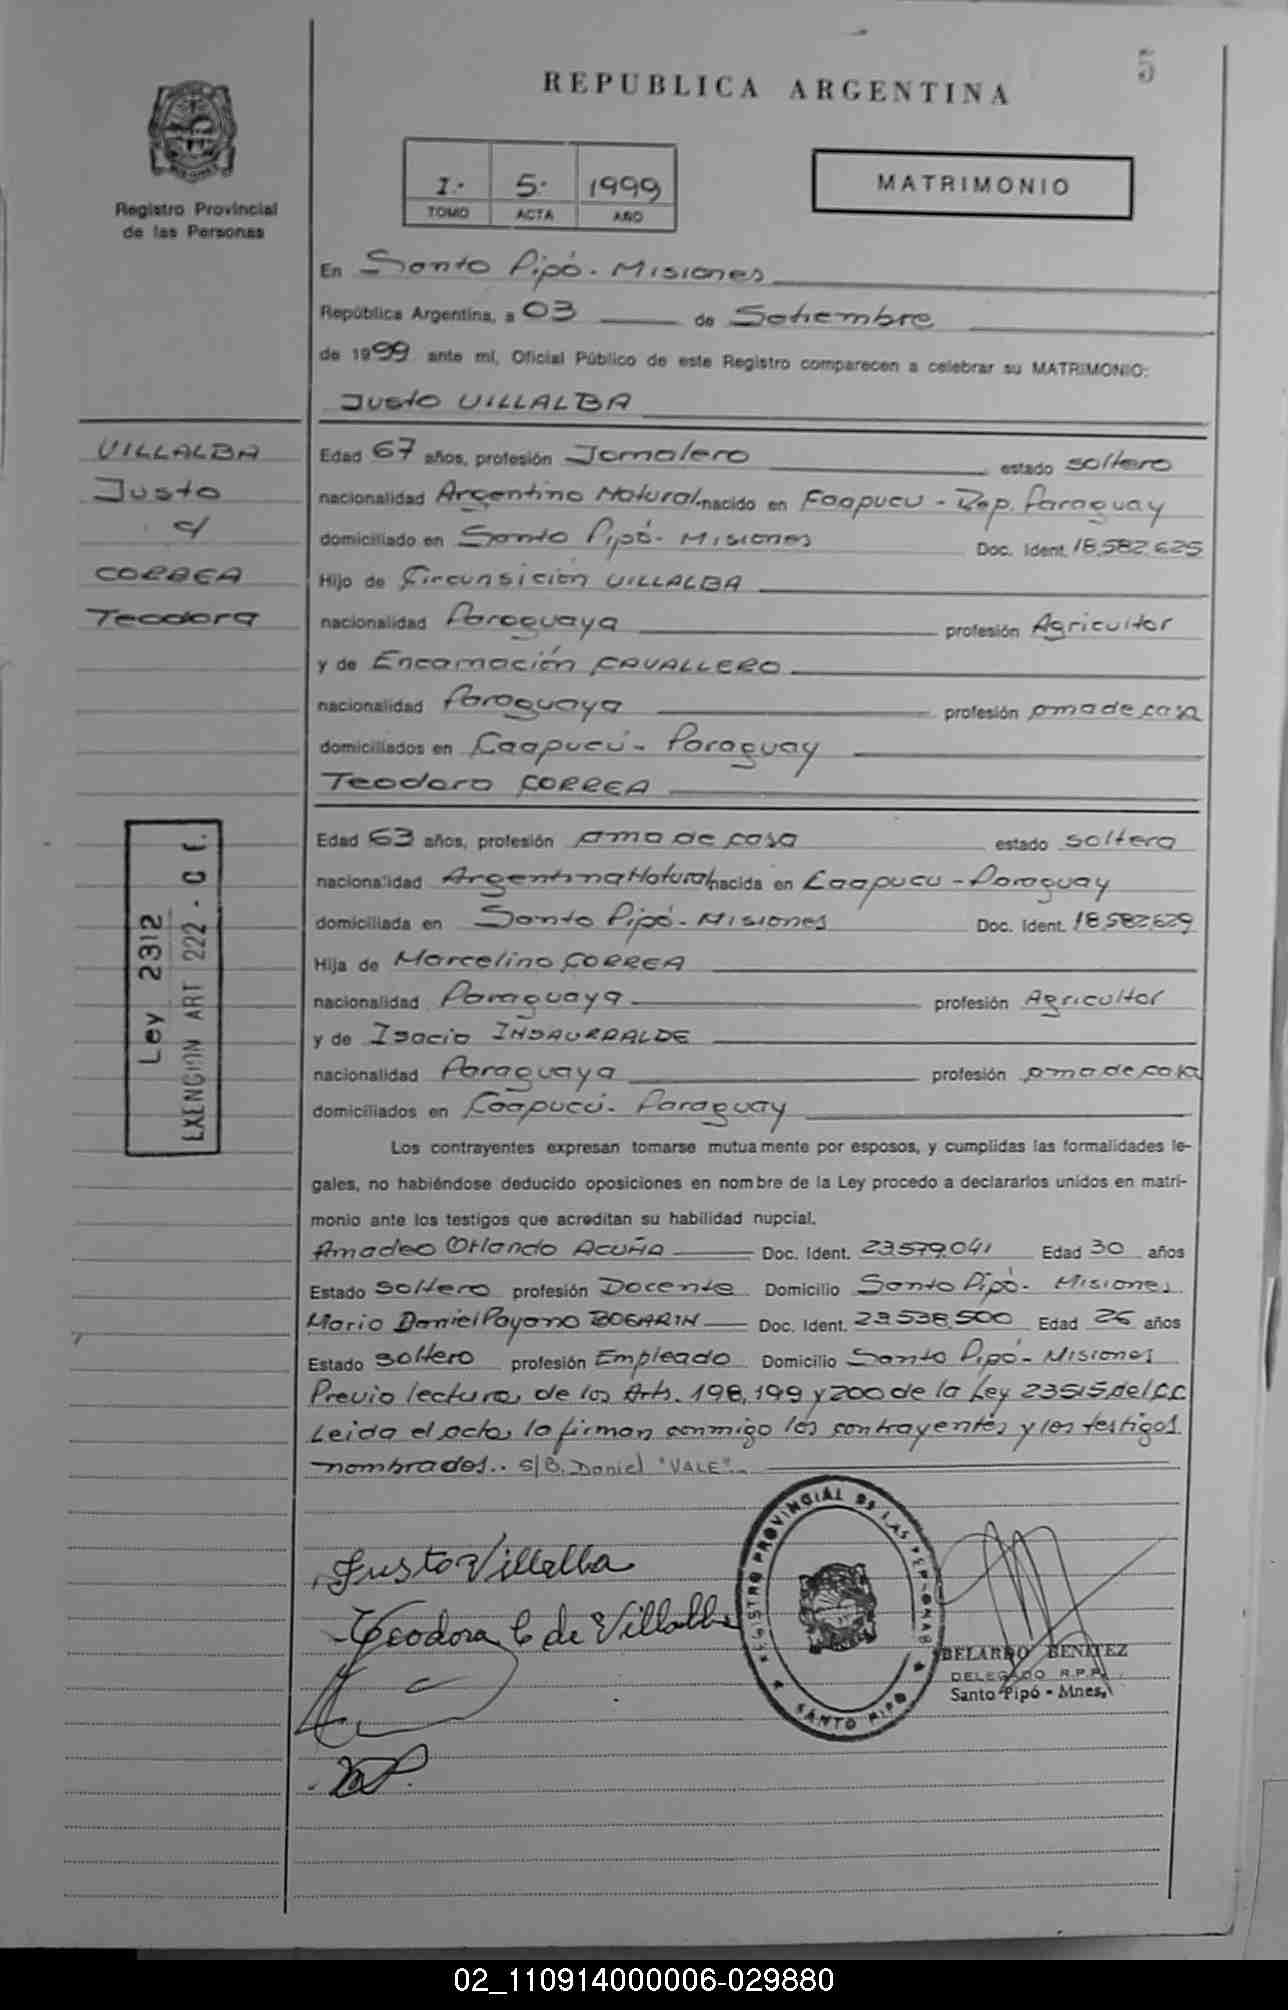 5
REPUBLICA ARGENTINA
Registro Provincial
de las Personas
I.- 5.- 1999
TOMO ACTA AÑO
MATRIMONIO
En Santo Pipó - Misiones
República Argentina, a 03 de Setiembre
de 1999 ante mí, Oficial Público de este Registro comparecen a celebrar su MATRIMONIO:
Justo VILLALBA
VILLALBA
Justo
c/
CORREA
Teodora
Edad 67 años, profesión Jornalero estado soltero
nacionalidad Argentino Natural. nacido en Caapucu - Rep. Paraguay
domiciliado en Santo Pipó - Misiones Doc. Ident. 18.582.625
Hijo de Circunsición VILLALBA
nacionalidad Paraguaya profesión Agricultor
y de Encarnación CAVALLERO
nacionalidad Paraguaya profesión ama de casa
domiciliados en Caapucú - Paraguay
Teodora CORREA
Edad 63 años, profesión ama de casa estado soltera
nacionalidad Argentina Natural nacida en Caapucu - Paraguay
domiciliada en Santo Pipó - Misiones Doc. Ident. 18.582.629
Hija de Marcelino CORREA
nacionalidad Paraguaya profesión Agricultor
y de Isacia INSAURRALDE
nacionalidad Paraguaya profesión ama de casa
domiciliados en Caapucú - Paraguay
Ley 2312
EXENCION ART 222 - C F.
Los contrayentes expresan tomarse mutuamente por esposos, y cumplidas las formalidades le-
gales, no habiéndose deducido oposiciones en nombre de la Ley procedo a declararlos unidos en matri-
monio ante los testigos que acreditan su habilidad nupcial.
Amadeo Orlando ACUÑA Doc. Ident. 23.579.041 Edad 30 años
Estado soltero profesión Docente Domicilio Santo Pipó - Misiones
Mario Daniel Payano BOGARIN Doc. Ident. 23.538.500 Edad 26 años
Estado soltero profesión Empleado Domicilio Santo Pipó - Misiones
Previo lectura, de los Arts. 198, 199 y 200 de la Ley 23515 del C.C
Leida el acta, la firman conmigo los contrayentes y los testigos
nombrados.. S/B. Daniel "VALE".
Justo Villalba
Teodora C de Villalba
REGISTRO PROVINCIAL DE LAS PERSONAS
SANTO PIPO
BELARDO BENITEZ
DELEGADO R.P.P.
Santo Pipó - Mnes.
02_110914000006-029880